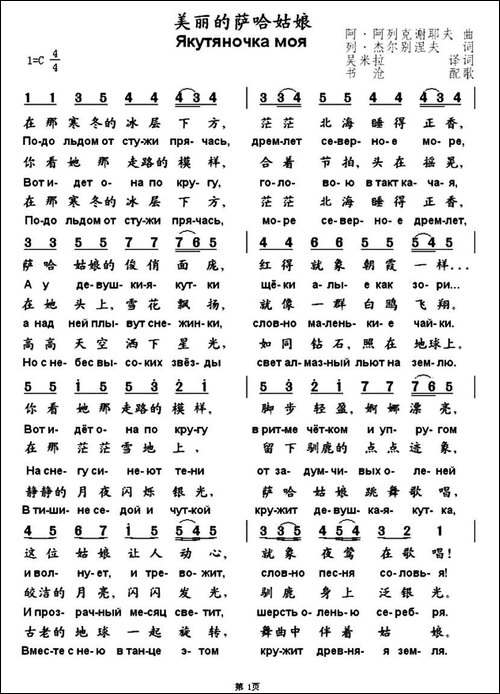 美丽的萨哈姑娘
Якутяночка моя
阿·阿列克谢耶夫 曲
列·杰尔别涅夫 词
吴米拉 译词
书沧 配歌
1=C 4/4
1 1 3 5 4 4 4 3 4 | 3 3 4 5 5 4 4 3 4 |
在那寒冬的冰层下方， 茫茫北海睡得正香，
По-до льдом от сту-жи пря-чась, дрем-лет се-вер-но-е мо-ре,
你看她那走路的模样， 合着节拍，头在摇晃，
Вот и-дет о-на по кру-гу, го-ло-во-ю в такт ка-ча-я,
在那寒冬的冰层下方， 茫茫北海睡得正香，
По-до льдом от сту-жи пря-чась, мо-ре се-вер-но-е дрем-лет,
3 3 5 5 7 7 7 6 5 | 4 4 6 6 5 5 5 4 5 |
萨哈姑娘的俊俏面庞， 红得就象朝霞一样...
А у де-вуш-ки-я-кут-ки щё-ки а-лы-е как зо-ри...
在她头上，雪花飘扬， 就像一群白鸥飞翔。
а над ней плы-вут сне-жин-ки, слов-но ма-лень-ки-е чай-ки.
高高天空洒下星光， 如同钻石，照在地球上。
Но с не-бес вы-со-ких звёз-ды свет ал-маз-ный льют на зем-лю.
5 5 1 5 5 3 2 1 | 5 5 1 2 1 7 7 7 6 5 |
你看她那走路的模样， 脚步轻盈，婀娜漂亮，
Вот и-дёт о-на по кру-гу в рит-ме чёт-ком и уп-ру-гом
在那茫茫雪地上， 留下驯鹿的点点迹象，
На сне-гу си-не-ют те-ни от за-дум-чи-вых о-ле-ней
静静的月夜闪烁银光， 萨哈姑娘跳舞歌唱，
В ти-ши-не се-дой и чут-кой кру-жит де-вуш-ка-я-кут-ка,
4 5 6 7 1 2 5 4 5 | 3 3 5 4 4 5 4 3 2 1
这位姑娘让人动心， 就象夜莺在歌唱！
и вол-ну-ет, и тре-во-жит, слов-но пес-ня со-ло-вья!
皎洁的月亮，闪闪发光， 驯鹿身上泛银光。
И проз-рач-ный ме-сяц све-тит, шерсть о-лень-ю се-реб-ря.
古老的地球一起旋转， 舞曲中伴着姑娘。
Вмес-те с не-ю в тан-це э-том кру-жит древ-ня-я зем-ля.
第 1页